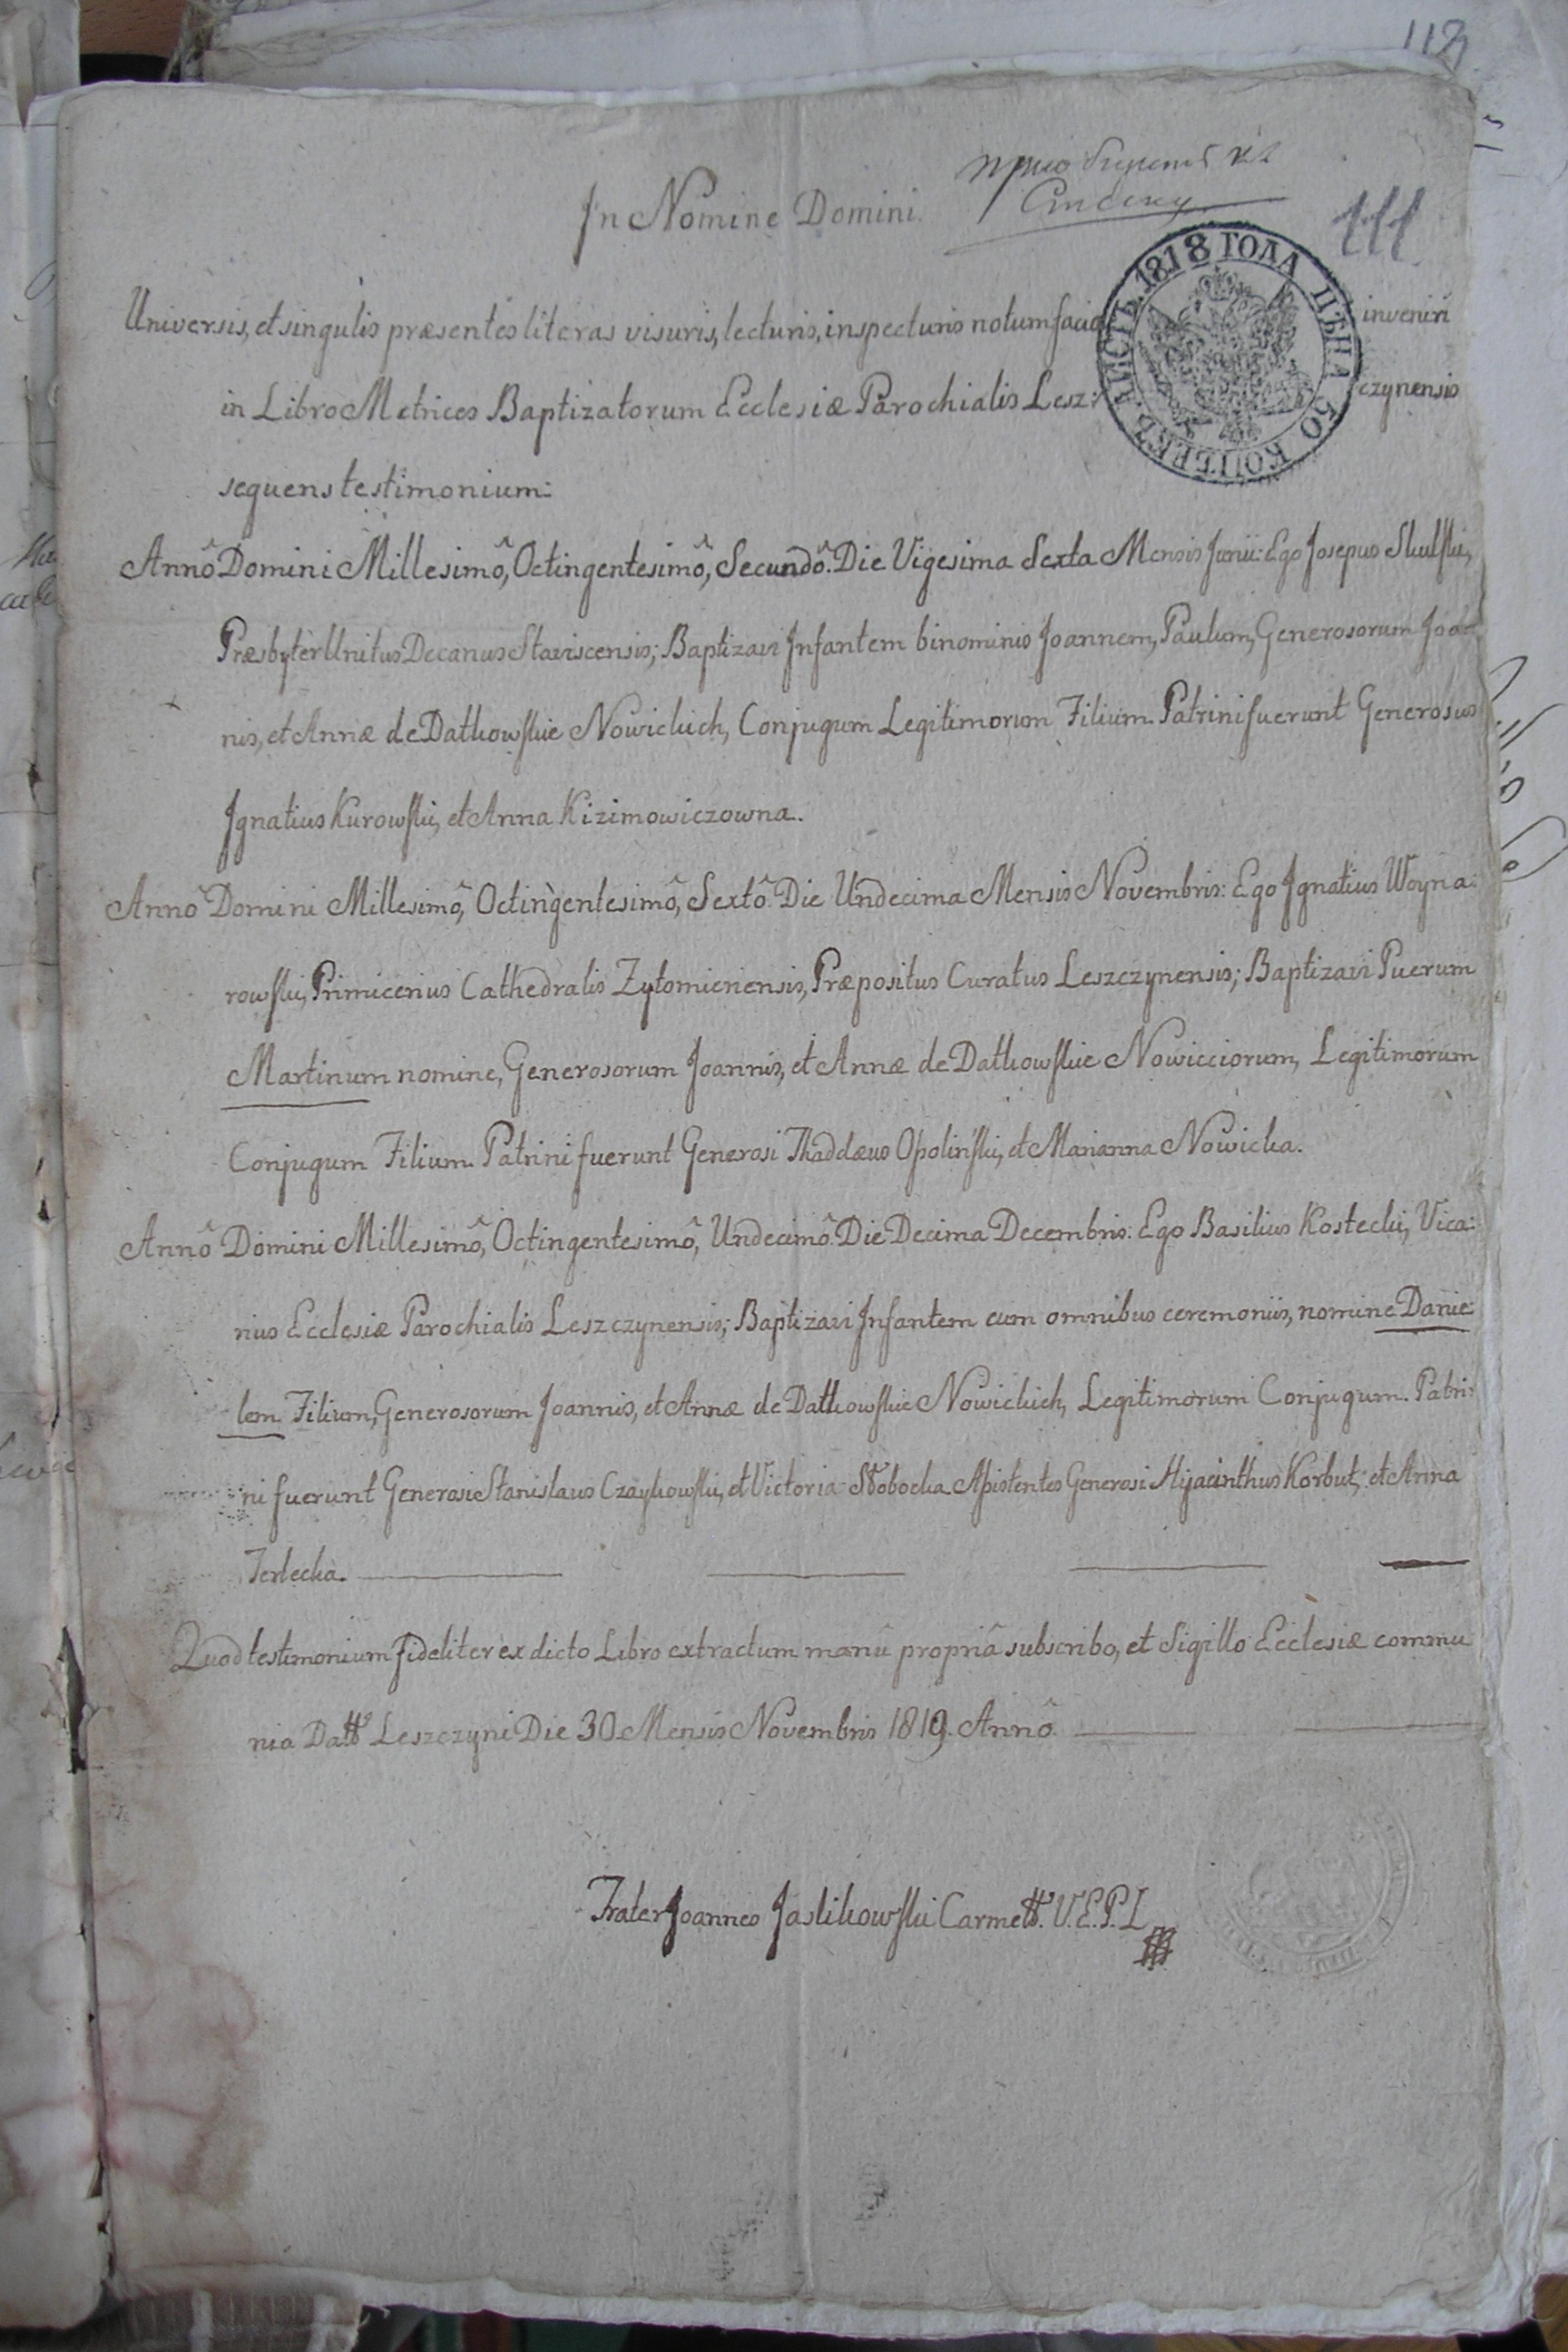 118
In Nomine Domini.
111
ЛИСТЪ. 1818 ГОДА ЦѢНА 50 КОПѢЕКЪ
Universis, et singulis præsentes literas visuris, lecturis, inspecturis notum facio inveniri
in Libro Metrices Baptizatorum Ecclesiæ Parochialis Lesz: czynensis
sequens testimonium:
Annô Domini Millesimô, Octingentesimô, Secundô. Die Vigesima Sexta Mensis Junii: Ego Josepus
Præsbyter Unitus Decanus Staviscensis; Baptizavi Infantem binominis Joannem, Paulum, Generosorum Joan
nis, et Annæ de Datkowskie Nowickich, Conjugum Legitimorum Filium. Patrini fuerunt Generosus
Ignatius Kurowski, et Anna Kizimowiczowna.
Annô Domini Millesimô, Octingentesimô, Sextô. Die Undecima Mensis Novembris: Ego Ignatius Woyna:
rowski, Primicerius Cathedralis Zytomiriensis, Præpositus Curatus Leszczynensis; Baptizavi Puerum
Martinum nomine, Generosorum Joannis, et Annæ de Datkowskie Nowicciorum, Legitimorum
Conjugum Filium. Patrini fuerunt Generosi Thaddæus Opoliński, et Marianna Nowicka.
Annô Domini Millesimô, Octingentesimô, Undecimô. Die Decima Decembris: Ego Basilius Kostecki, Vica:
rius Ecclesiæ Parochialis Leszczynensis; Baptizavi Infantem cum omnibus ceremoniis, nomine Danie:
lem Filium, Generosorum Joannis, et Annæ de Datkowskie Nowickich, Legitimorum Conjugum. Patri:
ni fuerunt Generosi Stanislaus Czaykowski, et Victoria Słobocka Assistentes Generosi Hyacinthus Korbut, et Anna
Terlecka.
Quod testimonium fideliter ex dicto Libro extractum manû propriâ subscribo, et Sigillo Ecclesiæ commu
nio Datt Leszczyni Die 30. Mensis Novembris 1819. Annô
Frater Joannes Jaslikowski Carmelt. V.E.P.L